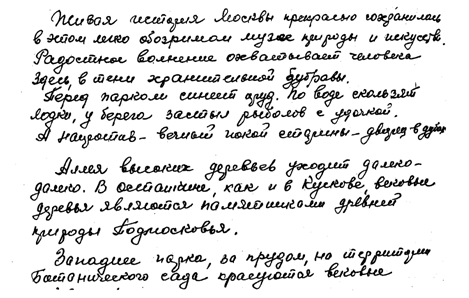 Живая история Москвы прекрасно сохранилась
в этом легко обозримом музее природы и искусств.
Радостное волнение охватывает человека
здесь, в тени хранительной дубравы.
Перед парком синеет пруд. По воде скользят
лодки, у берега застыл рыболов с удочкой.
А напротив – вечный покой старины – дворец в
Аллея высоких деревьев уходит далеко-
далеко. В Останкине, как и в Кускове, вековые
деревья являются памятниками древней
природы Подмосковья.
Западнее парка, за прудом, на территории
Ботанического сада красуются вековые